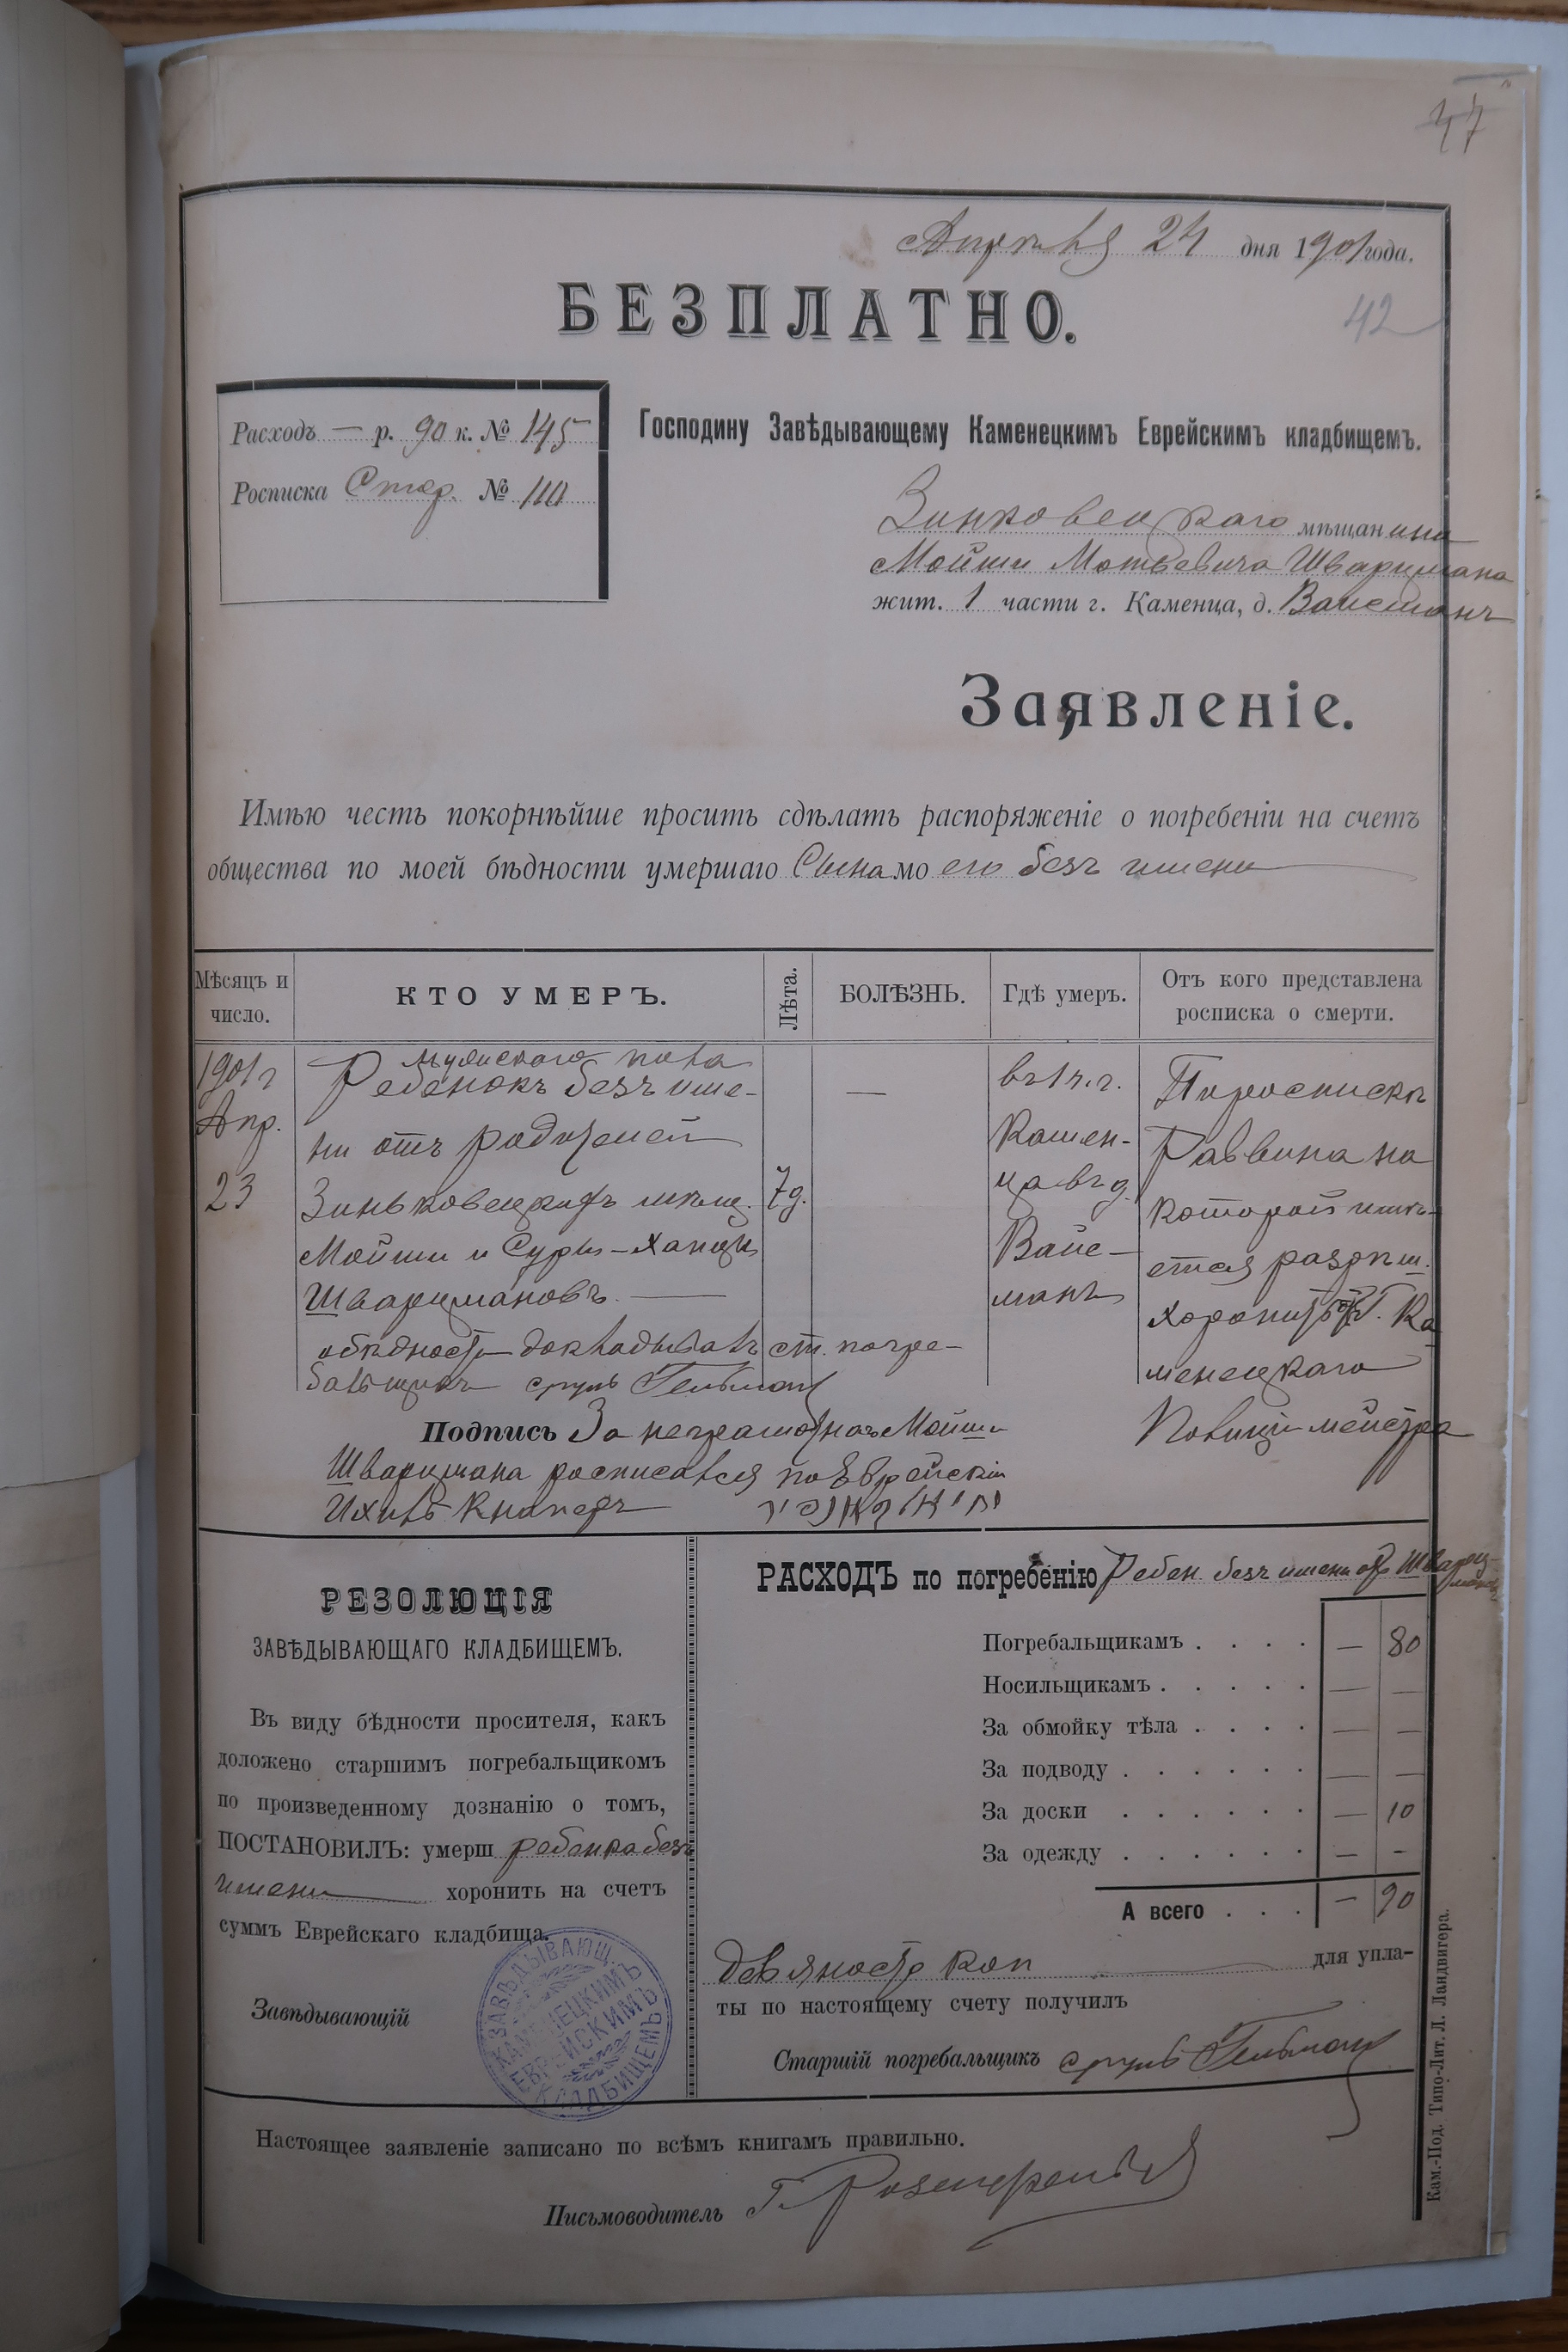 47
Апреля 24 дня 1901 года.
БЕЗПЛАТНО.
42
Расходъ — р. 90 к. № 145
Росписка Стар. № 110
Господину Завѣдывающему Каменецкимъ Еврейскимъ кладбищемъ.
Зинковецкаго мѣщанина
Мойши Мотьевича Шварцмана
жит. 1 части г. Каменца, д. Вайсманъ
Заявленіе.
Имѣю честь покорнѣйше просить сдѣлать распоряженіе о погребеніи на счетъ
общества по моей бѣдности умершаго Сына моего безъ имени
Мѣсяцъ и число.
КТО УМЕРЪ.
Лѣта.
БОЛѢЗНЬ.
Гдѣ умеръ.
Отъ кого представлена росписка о смерти.
1901 г
Апр.
23
мужскаго пола
Ребенокъ безъ име-
ни отъ родителей
Зиньковецкихъ мѣщ.
Мойши и Суры-Ханцы
Шварцмановъ. —
7 д.
—
въ 1 ч. г.
Камен-
ца въ д.
Вайс-
манъ
По росписки
Раввина на
которой имѣ-
ется разрѣш.
хоронить Г. Ка
менецкаго
Полиціймейстра
о бѣдности докладывалъ ст. погре-
бальщикъ Сруль Гельман
Подпись За неграмотнаго Мойши
Шварцмана росписался по Еврейскіи
Ихиль Кнапедъ
РЕЗОЛЮЦІЯ
ЗАВѢДЫВАЮЩАГО КЛАДБИЩЕМЪ.
Въ виду бѣдности просителя, какъ
доложено старшимъ погребальщикомъ
по произведенному дознанію о томъ,
ПОСТАНОВИЛЪ: умерш ребенка безъ
имени хоронить на счетъ
суммъ Еврейскаго кладбища.
Завѣдывающій
ЗАВѢДЫВАЮЩ.
КАМЕНЕЦКИМЪ
ЕВРЕЙСКИМЪ
КЛАДБИЩЕМЪ
РАСХОДЪ по погребенію Ребен. безъ имени от Шварц-
манов
Погребальщикамъ . . . . — 80
Носильщикамъ . . . . . — —
За обмойку тѣла . . . . — —
За подводу . . . . . . — —
За доски . . . . . . — 10
За одежду . . . . . . — -
А всего . . . — 90
девяносто коп для упла-
ты по настоящему счету получилъ
Старшій погребальщикъ Сруль Гельман
Настоящее заявленіе записано по всѣмъ книгамъ правильно.
Письмоводитель Г. Розенфельд
Кам.-Под. Типо-Лит. Л. Ландвигера.